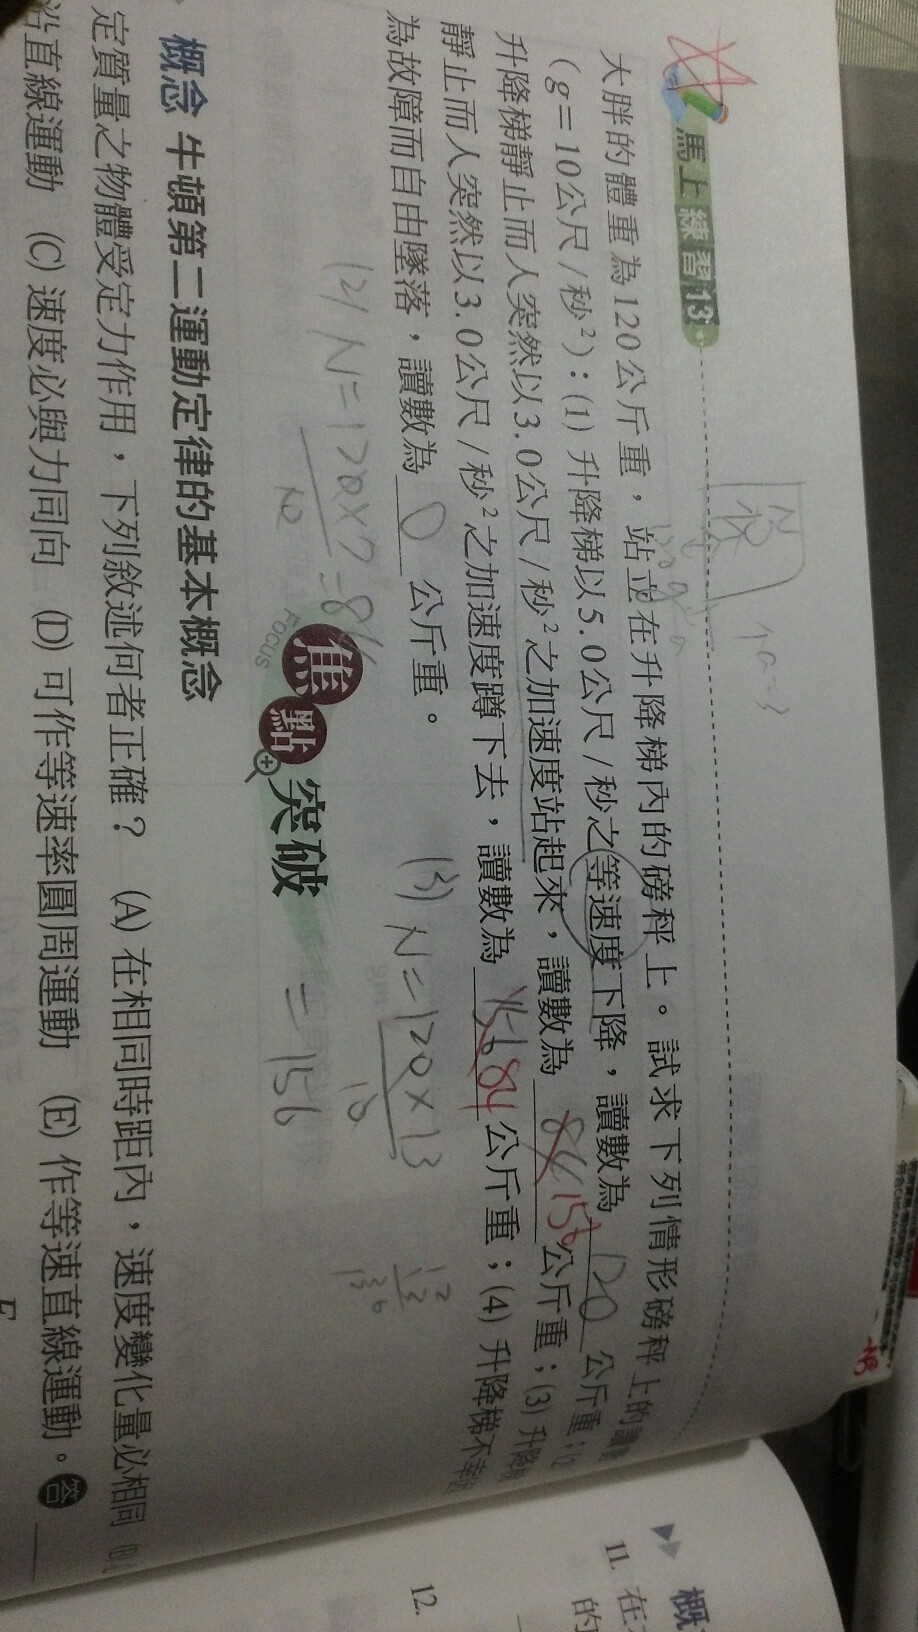 馬上練習13
大胖的體重為120公斤重，站立在升降梯內的磅秤上。試求下列情形磅秤上的
（g＝10公尺/秒²）：(1)升降梯以5.0公尺/秒之等速度下降，讀數為 120 公斤重；(2)
升降梯靜止而人突然以3.0公尺/秒²之加速度站起來，讀數為 84 156 公斤重；(3)升降梯
靜止而人突然以3.0公尺/秒²之加速度蹲下去，讀數為 156 84 公斤重；(4)升降梯不幸因
為故障而自由墜落，讀數為 0 公斤重。
(3) N=120×13
10
=156
(2) N=120×7=84
10
12
13
36
焦點突破
FOCUS
概念 牛頓第二運動定律的基本概念
定質量之物體受定力作用，下列敘述何者正確？ (A)在相同時距內，速度變化量必相同
沿直線運動 (C)速度必與力同向 (D)可作等速率圓周運動 (E)作等速直線運動。答
F
概
11. 在
的
12.